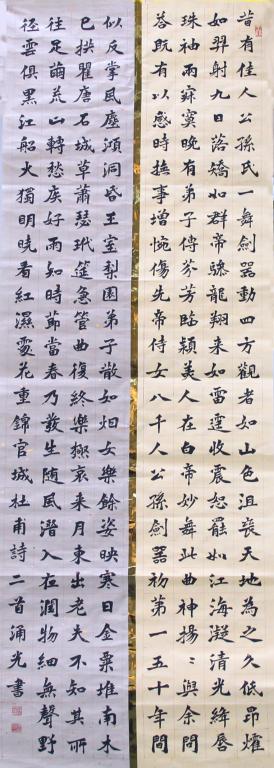 昔有佳人公孫氏一舞劍器動四方觀者如山色沮喪天地為之久低昂㸌
如羿射九日落矯如群帝驂龍翔來如雷霆收震怒罷如江海凝清光絳唇
珠袖兩寂寞晚有弟子傳芬芳臨潁美人在白帝妙舞此曲神揚〻與余問
答既有以感時撫事增惋傷先帝侍女八千人公孫劍器初第一五十年間
似反掌風塵澒洞昏王室梨園弟子散如烟女樂餘姿映寒日金粟堆南木
已拱瞿唐石城草蕭瑟玳筵急管曲復終樂極哀來月東出老夫不知其所
往足繭荒山轉愁疾好雨知時節當春乃發生隨風潛入夜潤物細無聲野
徑雲俱黑江船火獨明曉看紅濕處花重錦官城杜甫詩二首涌光書